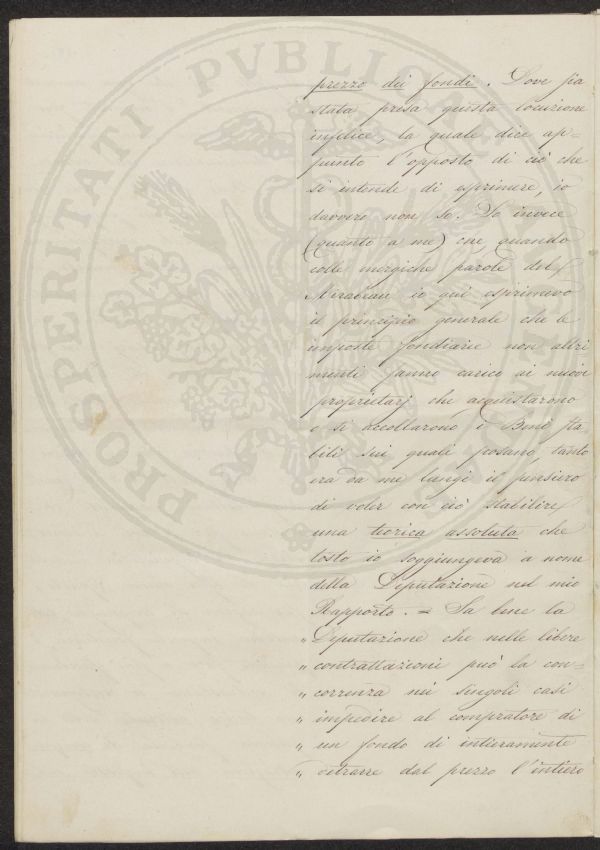 prezzo dei fondi. Dove sia
stata presa questa locuzione
infelice, la quale dice ap=
punto l'opposto di ciò che
si intende di esprimere, io
davvero non so. So invece
(quanto a me) che quando
colle energiche parole del
Mirabeau io qui esprimevo
il principio generale che le
imposte fondiarie non altri
menti fanno carico ai nuovi
proprietarj che acquistarono
o si accollarono i Beni sta
bili sui quali posano, tanto
era da me lungi il pensiero
di voler con ciò stabilire
una teorica assoluta che
tosto io soggiungeva a nome
della Deputazione nel mio
Rapporto. = Sa bene la
" Deputazione che nelle libere
" contrattazioni può la con=
" correnza nei singoli casi
" impedire al compratore di
" un fondo di intieramente
" detrarre dal prezzo l'intiero
PROSPERITATI PVBLICAE